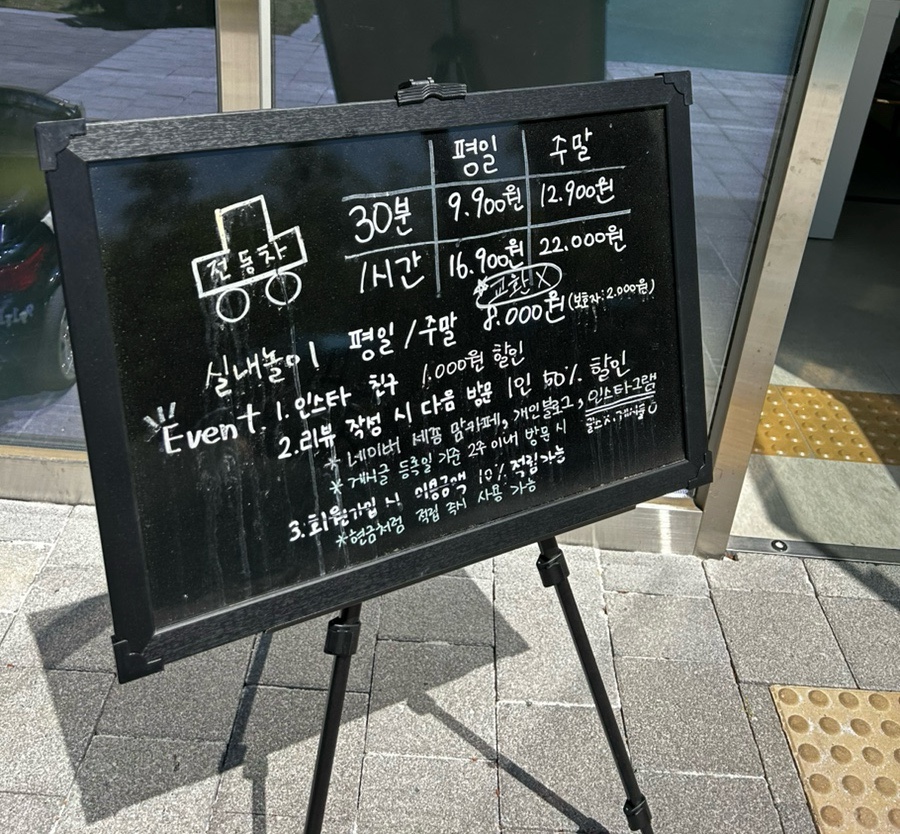 평일 주말
30분 9.900원 12.900원
전동차
1시간 16.900원 22.000원
교환 X
실내놀이 평일/주말 8.000원 (보호자: 2.000원)
Event. 1. 인스타 친구 1.000원 할인
2. 리뷰 작성 시 다음 방문 1인 50% 할인
* 네이버 세종 맘카페, 개인블로그, 인스타그램
* 게시글 등록일 기준 2주 이내 방문 시
3. 회원가입 시 이용금액 10% 적립가능
*현금처럼 적립 즉시 사용 가능